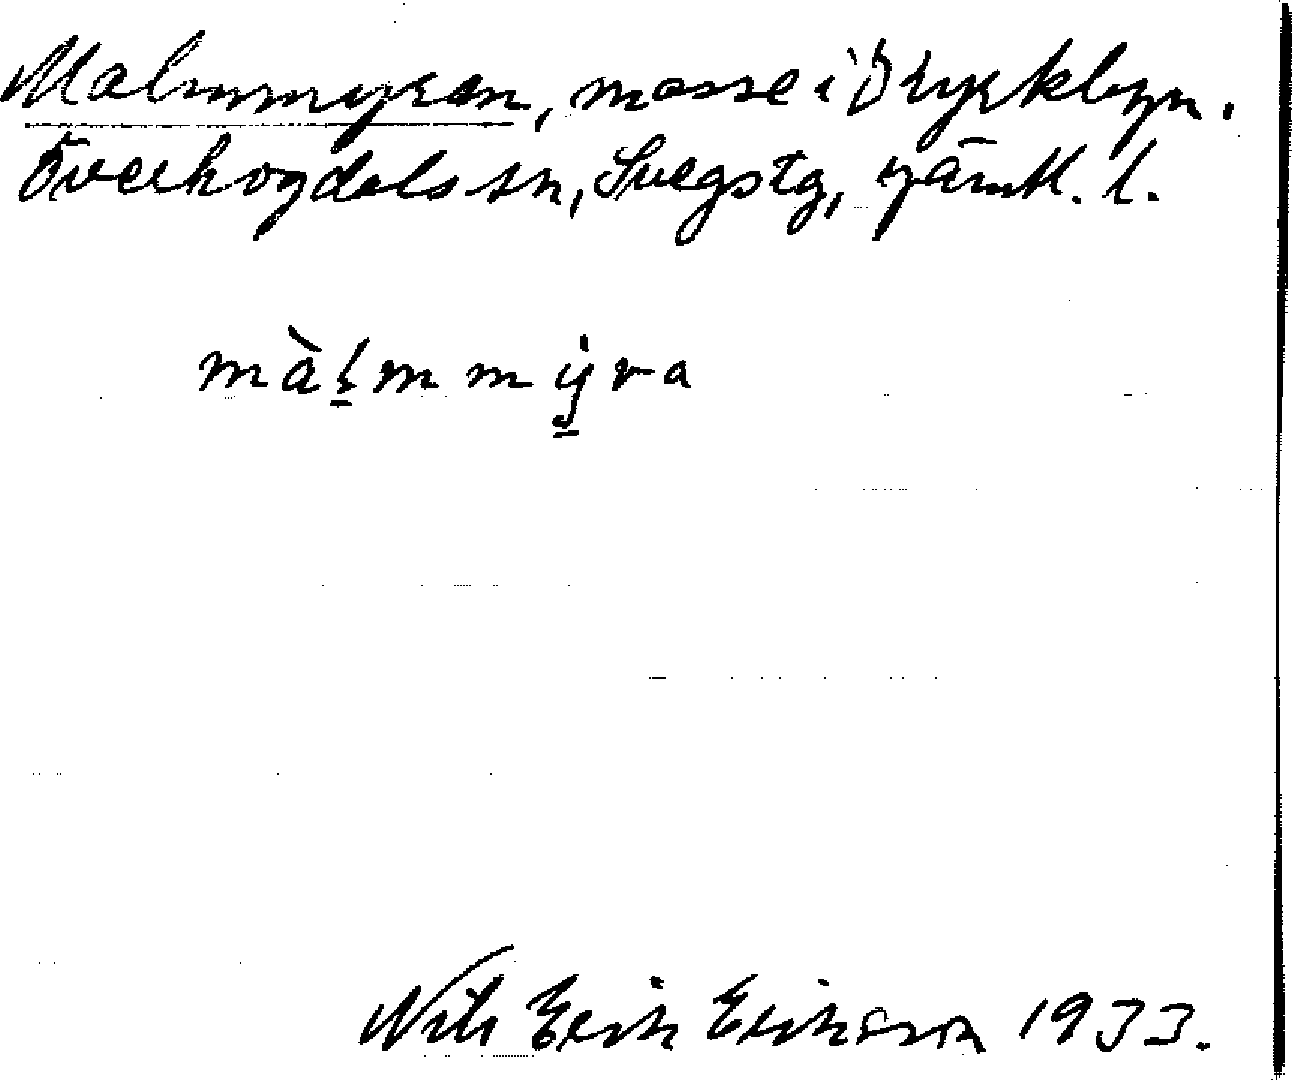 Malmmyran, mosse i Dryckbyn.
Överhogdals sn, Svegs tg, Jämtl. l.
màḷm mẏ̱ra
Nils Erik Erikson 1933.